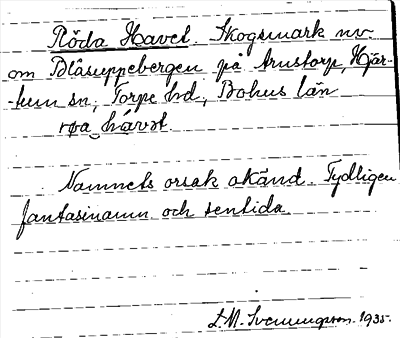 Röda Havet. Skogsmark nv
om Blåsuppebergen på Arnstorp, Hjär-
-tum sn, Torpe hd, Bohus län
røa hávǝt
Namnets orsak okänd. Tydligen
fantasinamn och sentida.
L.M. Svenungsson. 1935.